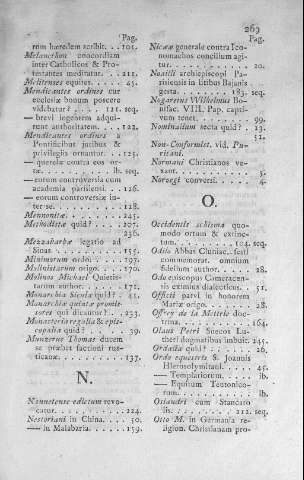 263
Pag.
rum heredem scribit. . . 101.
Melancthon concordiam
inter Catholicos & Pro-
testantes meditatur. . . 211.
Melitenses equites. . . . 45.
Mendicantes ordines cur
ecclesiæ bonum poscere
videbatur? . . . 121. seq.
— brevi ingentem adqui-
runt authoritatem. . . 122.
Mendicantes ordines a
Pontificibus juribus &
privilegiis ornantur. . . 125.
— querelæ contra eos or-
tæ. . . . . ib. seq.
— eorum controversia cum
academia parisiensi. . . 126.
— eorum controversiæ in-
ter se. . . . . 128.
Mennonitæ. . . . . 245.
Methodistæ quid? . . . 207.
236.
Mezzabarbæ legatio ad
Sinas. . . . . 155.
Minimorum ordo. . . . 197.
Molinistarum origo. . . 170.
Molinos Michael Quietis-
tarum author. . . . 171.
Monarchia Sicula quid? . 41.
Monarchiæ quintæ promit-
tores qui dicantur? . . 233.
Monasteria regalia & epis-
copalia quid? . . . 39.
Munzerus Thomas ducem
se præbet factioni rus-
ticanæ. . . . . 137.
N.
Nannetense edictum revo-
catur. . . . . 224.
Nestoriani in China. . . 50.
— in Malabaria. . . . 159.
Pag.
Nicææ generale contra Ico-
nomachos concilium agi-
tur. . . . . 20.
Noailli archiepiscopi Pa-
risiensis in litibus Bajanis
gesta. . . . . 183. seq.
Nogaretus Wilhelmus Bo-
nifac. VIII. Pap. capti-
vum tenet. . . . 99.
Nominalium secta quid? . 13.
51.
Non-Conformist. vid. Pu-
ritani.
Normani Christianos ve-
xant. . . . . 5.
Norvegi conversi. . . . 4.
O.
Occidentis schisma quo-
modo ortum & extinc-
tum. . . . . 104. seq.
Odilo Abbas Cluniac. festi
commemorat. omnium
fidelium author. . . 28.
Odo episcopus Cameracen-
sis eximius dialecticus. . 51.
Officii parvi in honorem
Mariæ origo. . . . 28.
Offrey de la Metterie doc-
trina. . . . . 164.
Olaus Petri Suecos Lu-
theri dogmatibus imbuit. 245.
Ordalia quid? . . . . 26.
Ordo equestris S. Joannis
Hierosolymitani. . . 45.
— Templariorum. . . . ib.
— Equitum Teutonico-
rum. . . . . ib.
Osiandri cum Stancaro
lis. . . . . 212. seq.
Otto M. in Germania re-
ligion. Christianam pro-